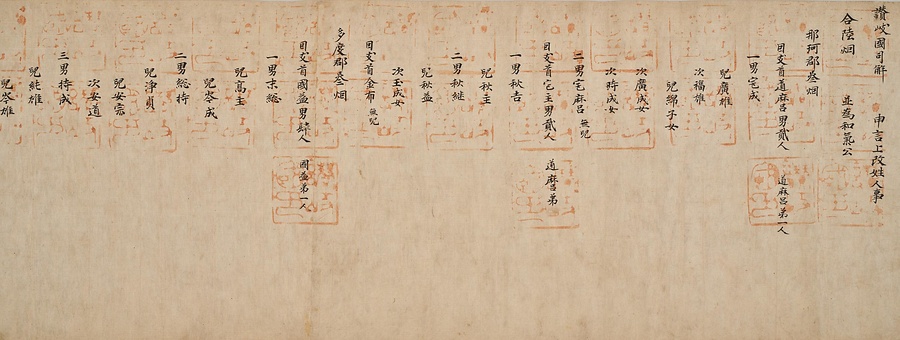 讃岐國司解　申言上改姓人事
合陸烟　並為和氣公
那珂郡叁烟
因支首道麻呂男貳人　道麻呂弟一人
一男宅成
兒廣雄
次福雄
兒綿子女
次廣成女
次時成女
二男宅麻呂 無兒
因支首宅主男貳人　道麻呂弟
一男秋吉
兒秋主
二男秋継
兒秋益
次玉成女
因支首金布 無兒
多度郡叁烟
因支首國益男肆人　國益弟一人
一男末総
兒髙主
二男総持
兒岑成
兒淨貞
兒女宗
次安道
三男持成
兒純雄
兒岑雄